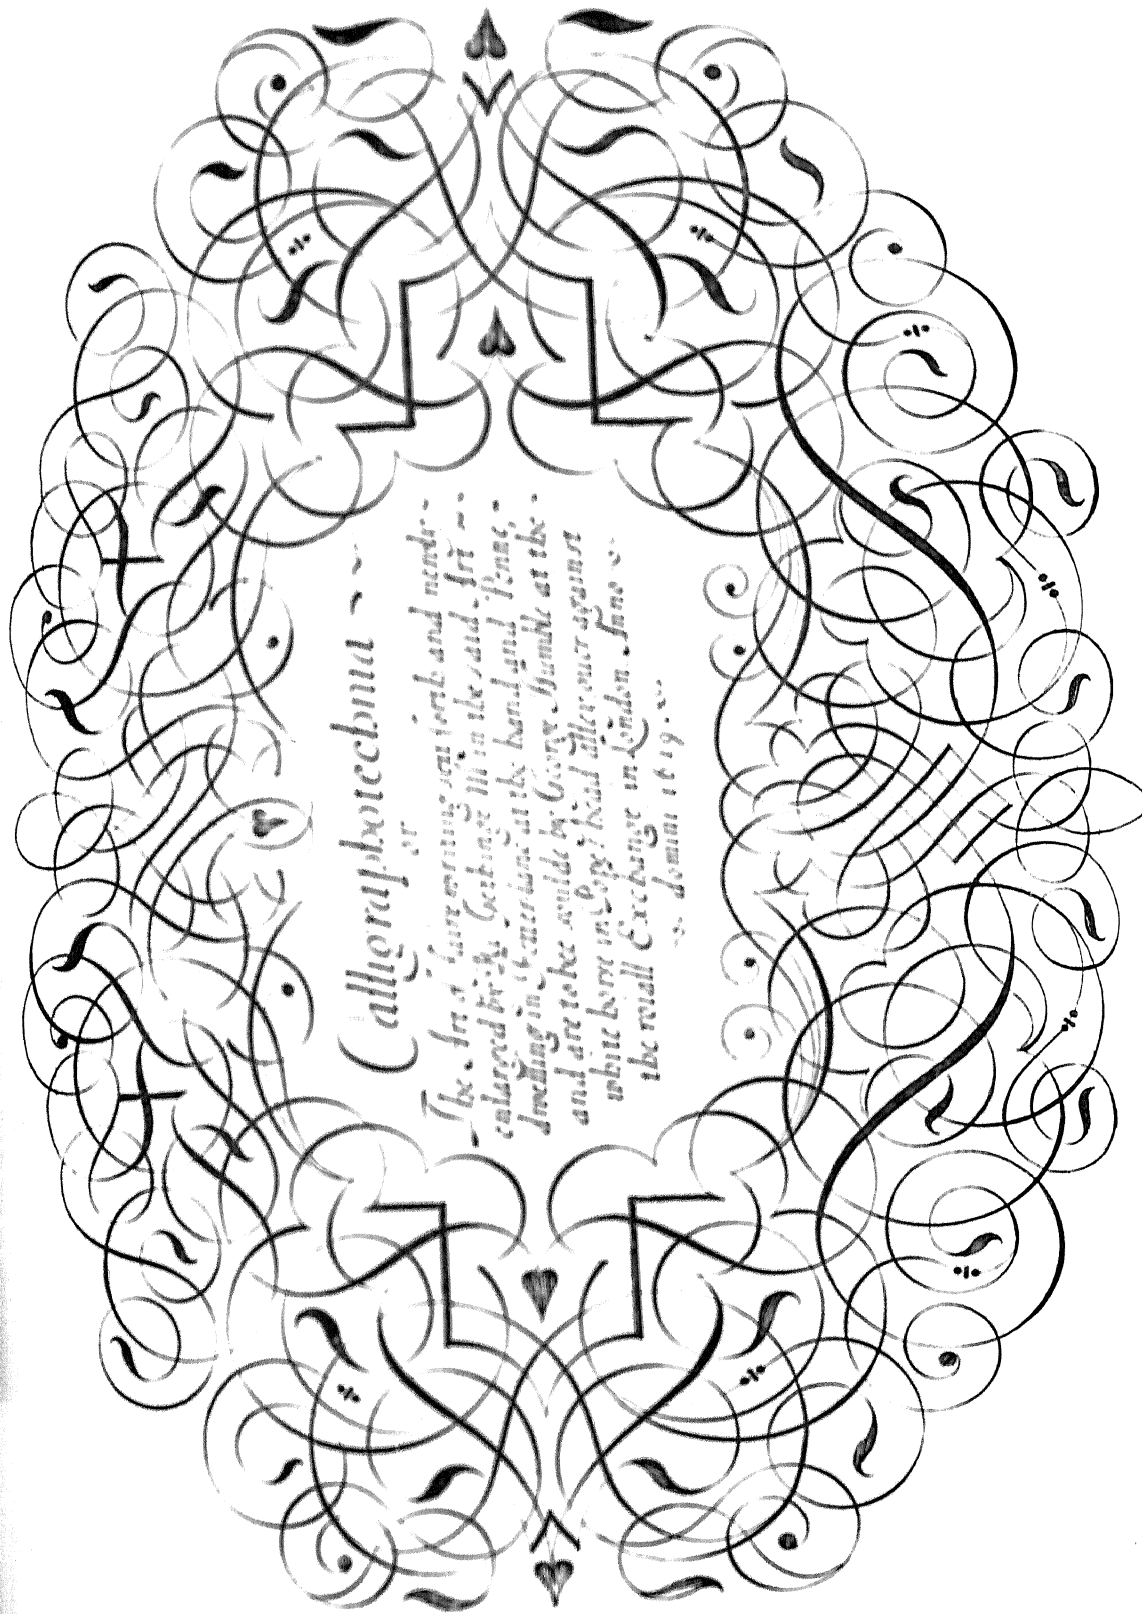 Calligraphotechnia
or
The Art of faire writing sett forth, and newly
enlarged by Ri: Gethinge Mr in the said Art
dwelling in fetter-lane at the hand and Penne,
and are to bee soulde by George Humble at the
white horse in Popes head alley ouer against
the roiall Exchange in London Anno
domini 1619.